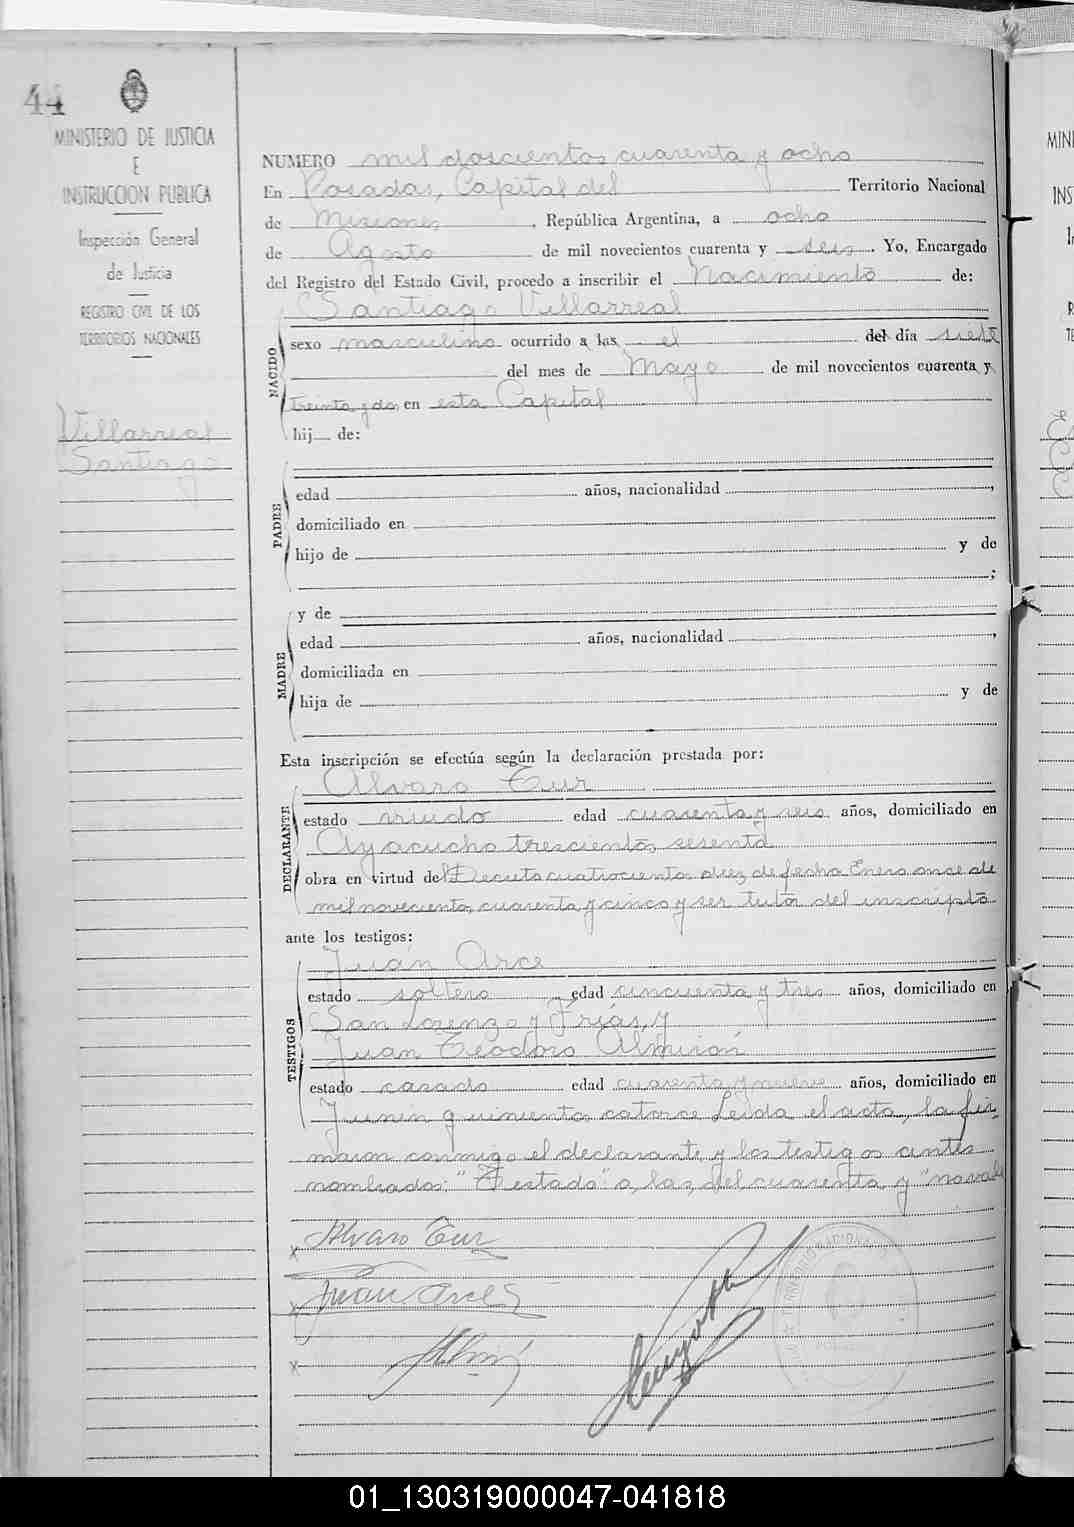 44
MINISTERIO DE JUSTICIA
E
INSTRUCCION PUBLICA
Inspección General
de Justicia
REGISTRO CIVIL DE LOS
TERRITORIOS NACIONALES
Villarreal
Santiago
NUMERO mil doscientos cuarenta y ocho
En Posadas, Capital del Territorio Nacional
de Misiones, República Argentina, a ocho
de Agosto de mil novecientos cuarenta y seis. Yo, Encargado
del Registro del Estado Civil, procedo a inscribir el Nacimiento de:
Santiago Villarreal
NACIDO
sexo masculino ocurrido a las el del día siete
del mes de Mayo de mil novecientos cuarenta y
treinta y dos en esta Capital
hij de:
PADRE
edad años, nacionalidad ,
domiciliado en
hijo de y de
;
MADRE
y de
edad años, nacionalidad ,
domiciliada en
hija de y de
Esta inscripción se efectúa según la declaración prestada por:
DECLARANTE
Alvaro Tur
estado viudo edad cuarenta y seis años, domiciliado en
Ayacucho trescientos sesenta
obra en virtud del Decreto cuatrocientos diez de fecha Enero once de
mil novecientos cuarenta y cinco y ser tutor del inscripto
ante los testigos:
TESTIGOS
Juan Arce
estado soltero edad cincuenta y tres años, domiciliado en
San Lorenzo y Frías, y
Juan Teodoro Almirón
estado casado edad cuarenta y nueve años, domiciliado en
Junin quinientos catorce Leida el acta, la fir
maron conmigo el declarante y los testigos antes
nombrados: "Testado" a, las, del cuarenta y "no vale
x Alvaro Tur
x Juan Arce
x
01_130319000047-041818
MINI
INS